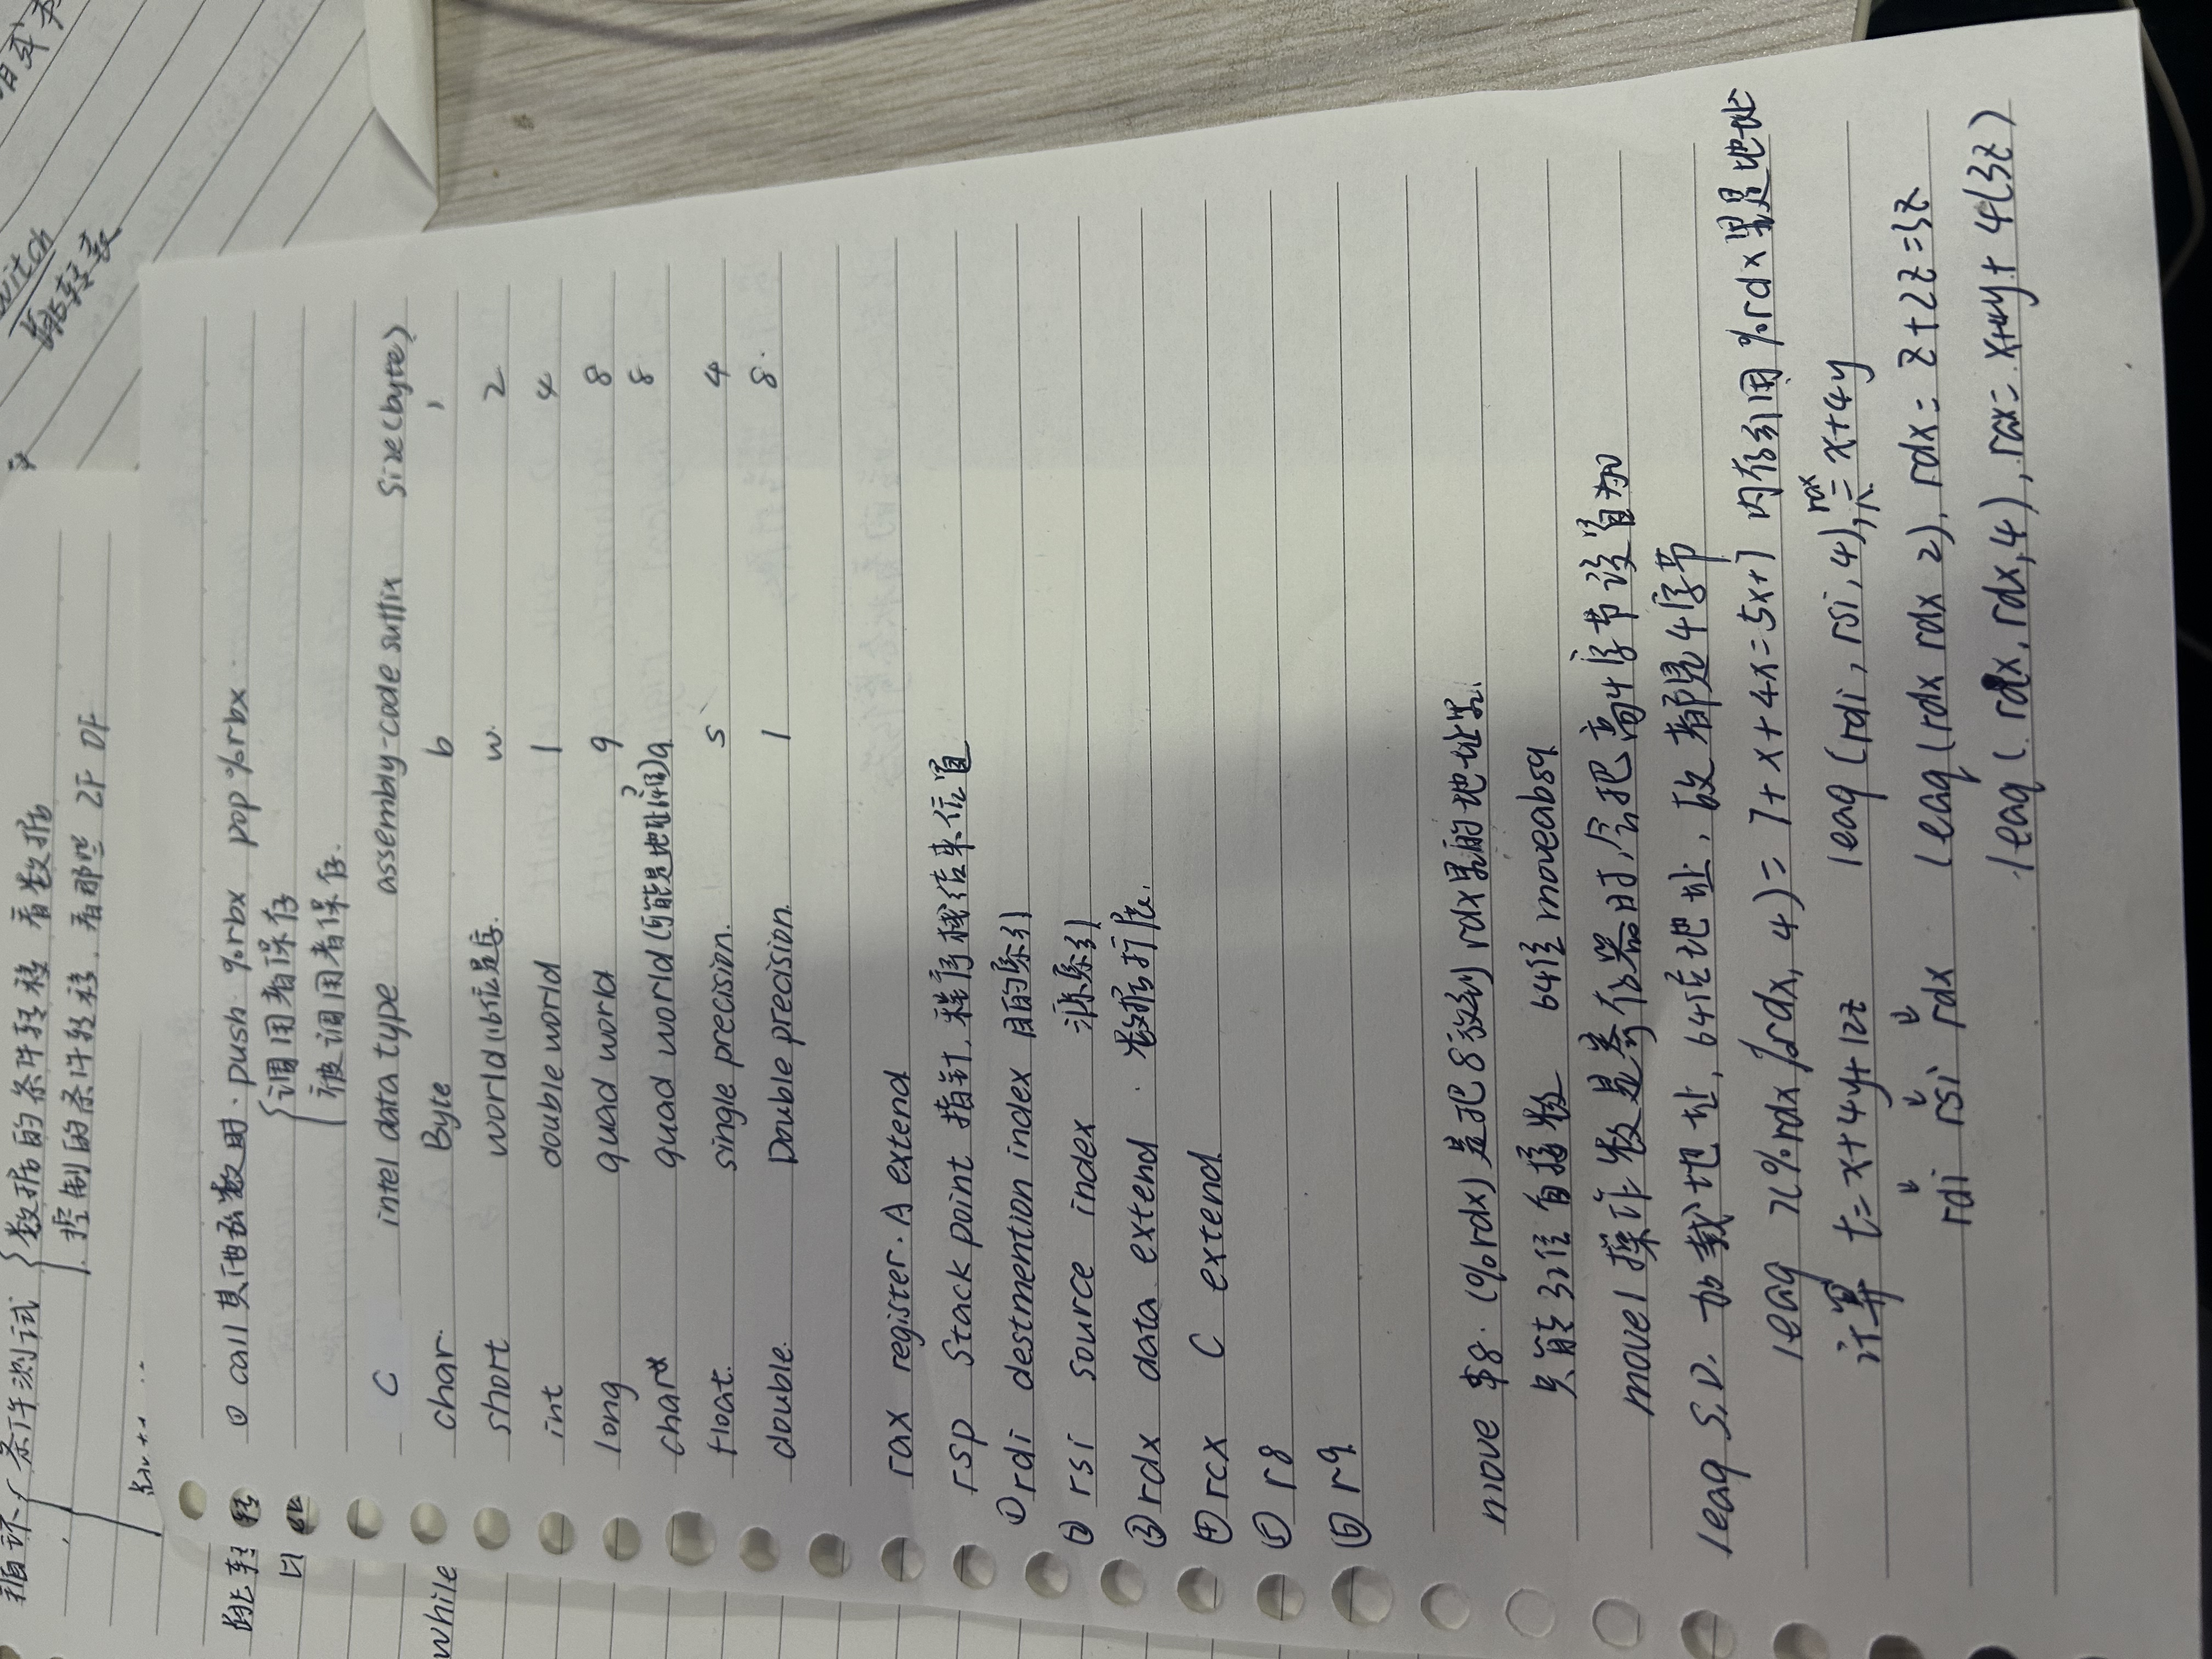 循环 条件测试 数据的条件转移 看数据
控制的条件转移. 看那些 ZF OF
witch
跳转表
跳转
while
① call 其他函数时. push %rbx pop %rbx
调用者保存
被调用者保存.
C intel data type assembly-code suffix Size(byte)
char. Byte b 1
short world (16位是字. w. 2
int double world l 4
long quad world q 8
char* quad world (可能是地址64位)q 8
float. single precision. s 4
double. Double precision. l 8.
rax register. A extend
rsp Stack point 指针, 程序栈结束位置
①rdi destmention index 目的索引
② rsi source index 源索引
③ rdx data extend . 数据扩展.
④ rcx C extend
⑤ r8
⑥ r9
move $8. (%rdx) 是把8放到 rdx里的地址里.
只能32位自接数 64位 moveabsq
movel 操作数是寄存器时,会把高4字节设置为0
leaq S,D. 加载地址, 64位地址, 故都是4字节
leaq 7(%rdx %rdx, 4) = 7+x+4x=5x+7 内存引用 %rdx里是地址
计算 t=x+4y+12z leaq (rdi, rsi, 4), rax = x+4y
rdi rsi rdx leaq (rdx rdx 2), rdx = z+2z=3z
leaq ( rdx, rdx, 4), rax = x+4y+ 4(3z)